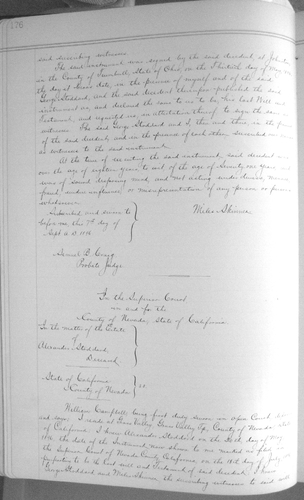 176
said subscribing witness.
The said instrument was signed by the said decedent, at Johnston
in the County of Trumbull, State of Ohio, on the Twentieth day of May 1916
the day it bears date, in the presence of myself and of the said
George Stoddard, and the said decedent thereupon published the said
instrument as, and declared the same to me to be, his last Will and
Testament, and requested me, in attestation thereof, to sign the same as
witness. The said George Stoddard and I, then and there, in the presence
of the said decedent, and in the presence of each other, subscribed our names
as witnesses to the said instrument.
At the time of executing the said instrument, said decedent was
over the age of eighteen years, to wit of the age of Seventy six years and
was of sound disposing mind, and not acting under duress, menace,
fraud, undue influence, or misrepresentation of any person or persons
whomsoever.
Miles Skinner
Subscribed and sworn to
before me this 7th day of
Sept A D 1916
Samuel B. Craig
Probate Judge
In the Superior Court
in and for the
County of Nevada, State of California
In the matter of the Estate
of
Alexander Stoddard,
Deceased.
State of California
County of Nevada } ss
William Campbell being first duly sworn in open Court
and says: I reside at Grass Valley, Grass Valley Tp., County of Nevada
of California. I knew Alexander Stoddard on the day of May
1916, the date of the Instrument, now shown to me marked as filed in
the Superior Court of Nevada County, California, on the day of July
purporting to be the last will and Testament of said decedent; I knew
George Stoddard and Miles Skinner, the subscribing witnesses to said